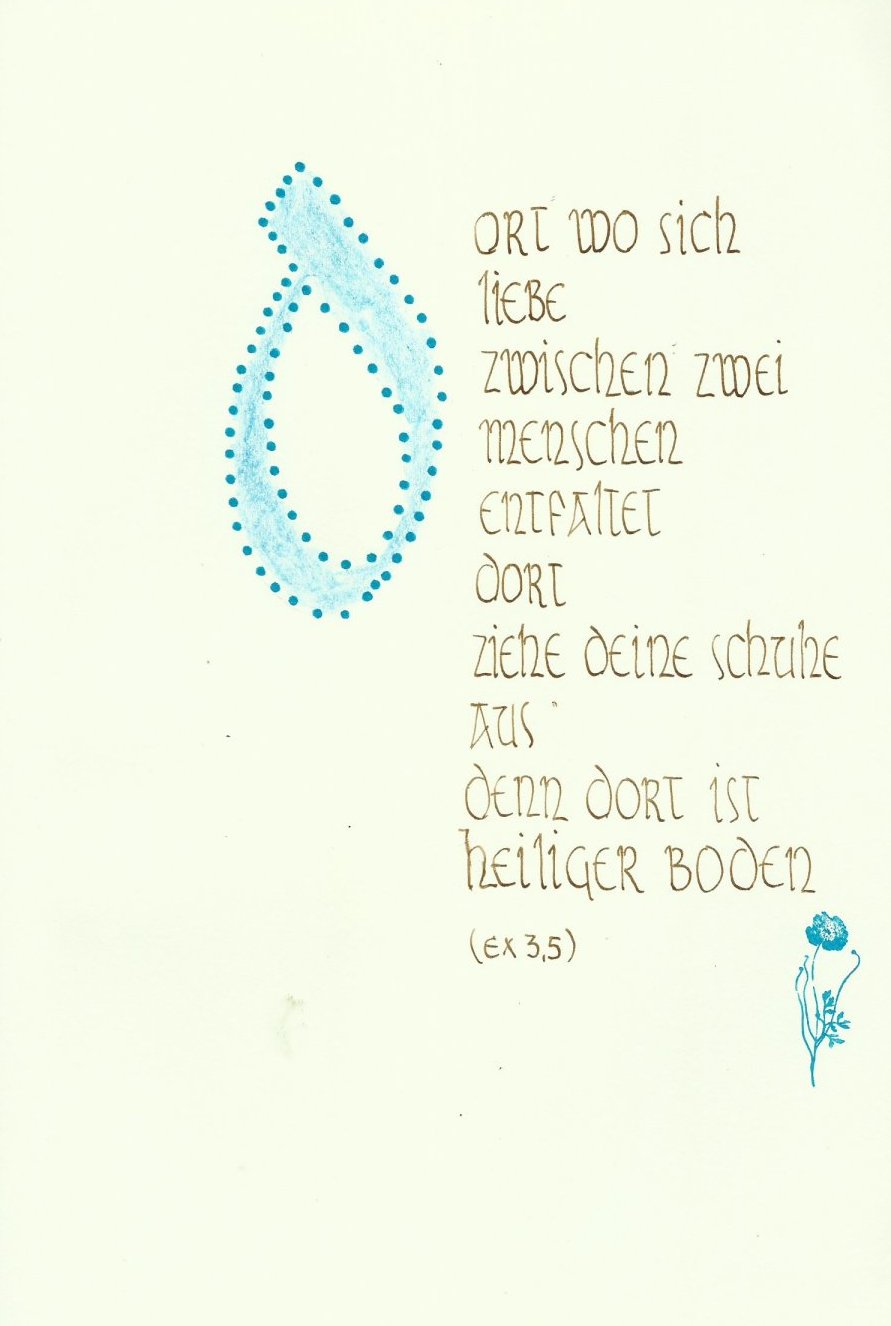 Dort wo sich
liebe
zwischen zwei
menschen
entfaltet
dort
ziehe deine schuhe
aus
denn dort ist
heiliger boden
(ex 3,5)